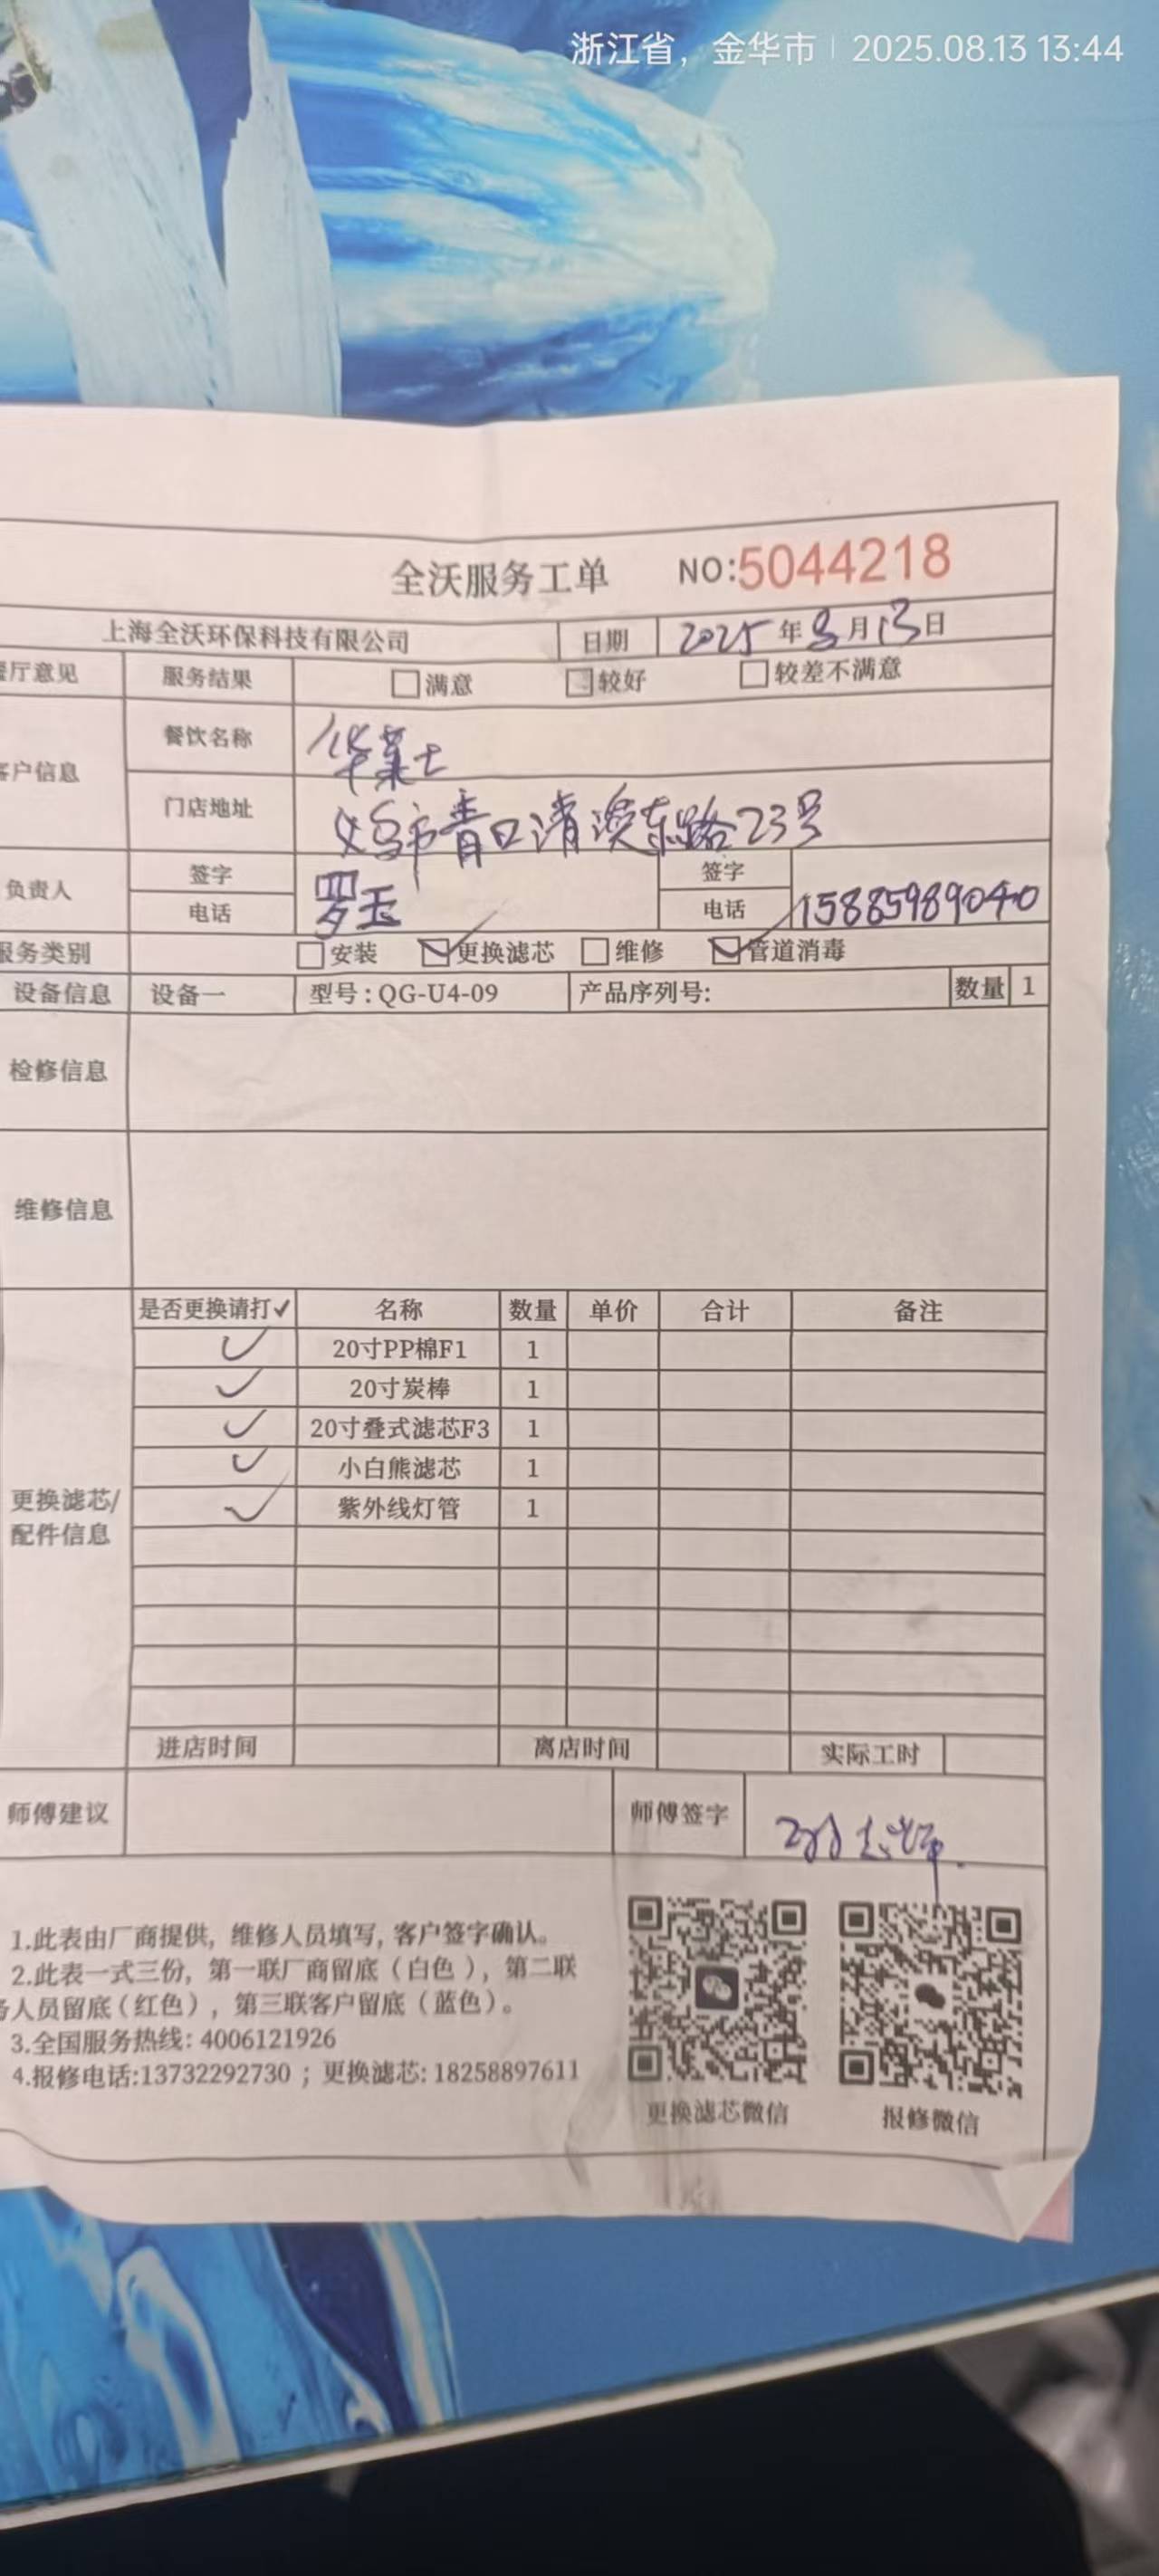 浙江省，金华市 | 2025.08.13 13:44
全沃服务工单 NO:5044218
上海全沃环保科技有限公司 日期 2025年8月13日
餐厅意见 服务结果 □满意 □较好 □较差不满意
客户信息 餐饮名称 华莱士
门店地址 义乌市青口清溪东路23号
负责人 签字 罗玉 签字
电话 电话 15885989040
服务类别 □安装 ☑更换滤芯 □维修 ☑管道消毒
设备信息 设备一 型号：QG-U4-09 产品序列号： 数量 1
检修信息
维修信息
是否更换请打✓ 名称 数量 单价 合计 备注
✓ 20寸PP棉F1 1
✓ 20寸炭棒 1
✓ 20寸叠式滤芯F3 1
✓ 小白熊滤芯 1
更换滤芯/配件信息 ✓ 紫外线灯管 1
进店时间 离店时间 实际工时
师傅建议 师傅签字
1.此表由厂商提供，维修人员填写，客户签字确认。
2.此表一式三份，第一联厂商留底（白色），第二联
务人员留底（红色），第三联客户留底（蓝色）。
3.全国服务热线：4006121926
4.报修电话:13732292730；更换滤芯: 18258897611
更换滤芯微信 报修微信